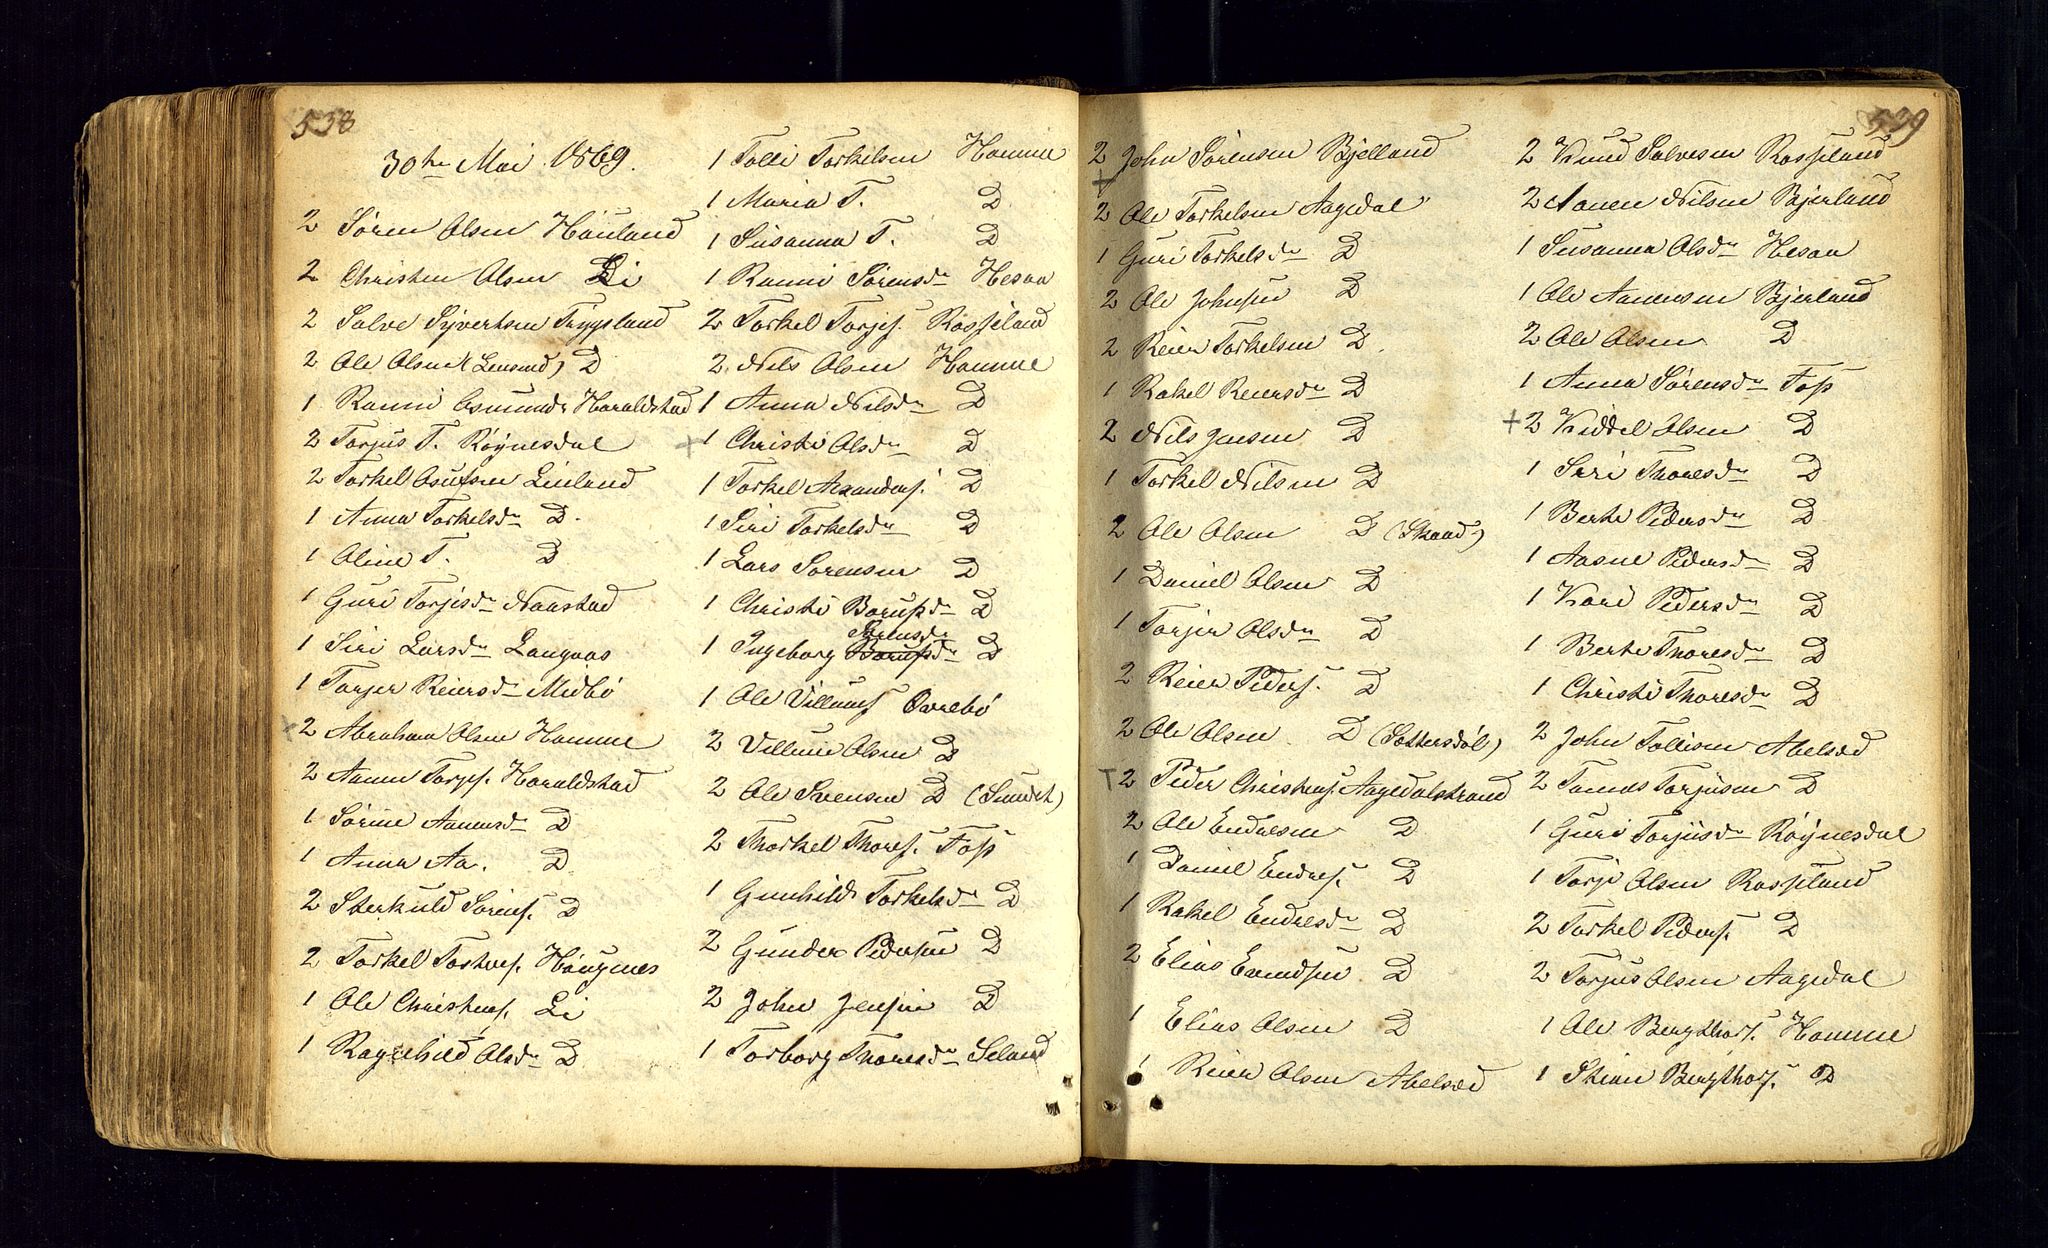 538
30te Mai 1869.
2 Sören Olsen Häuland
2 Christen Olsen Li
2 Salve Syvertsen Trygsland
2 Ole Olsen (Lensmd) D
1 Ranni Osmunds Haraldstad
2 Torjus T. Röynesdal
2 Torkel Osulfsen Linland
1 Anna Torkelsdr D.
1 Oline T. D
1 Guri Torjisdr Naastad
1 Siri Larsdr Langaas
1 Torjer Reiersdr Midbö
2 Abraham Olsen Homme
2 Aanen Torjess. Haraldstad
1 Sörine Aanensdr D
1 Anna Aa. D
2 Sterkuld Sörens. D
2 Torkel Tostens. Höugnes
1 Ole Christens. Li
1 Ragnhild Olsdr D
1 Tolli Torkilsen Homme
1 Maria T. D
1 Susanna T. D
1 Ranni Sörensdr Hesaa
2 Torkel Torjes. Rosseland
2 Nils Olsen Homme
1 Anna Nilsdr D
+ 1 Christi Olsdr D
1 Torkel Axanders. D
1 Siri Torkelsdr D
1 Lars Sorensen D
1 Christi Borufsdr D
Sörensdr
1 Ingeborg Borufsdr D
1 Ole VillumsÖvrebö
2 Villum Olsen D
2 Ole Svensen D (Smidt)
2 Thorkel Thores. Foss
1 Gunhild Torkelsdr D
2 Gunder Pedersen D
2 John Jensen D
1 Torborg Thoresdr Seland
539
2 John Sörensen Bjelland
+
2 Ole Torkelsen Aagedal
1 Guri Torkelsdr D
2 Ole Johnsen D
2 Reier Torkelsen D
1 Rakel Reiersdr D
2 Nils Jensen D
1 Torkel Nilsen D
2 Ole Olsen D (Skomd)
1 Daniel Olsen D
1 Torjer Olsdr D
2 Reier Peders. D
2 Ole Olsen D (Sættersdöl)
2 Peder Christens. Aagedalstrand
2 Ole Endresen D
1 Daniel Endres. D
1 Rakel Endresdr D
2 Elias Evendsen D
1 Elias Olsen D
1 Reier Olsen Abelsæd
2 Knud Salvesen Rosseland
2 Aanen Nilsen Bjerland
1 Susanna Olsdr Hesaa
1 Ole Aanensen Bjerland
2 Ole Olsen D
1 Anna Sörensdr Foss
+ 2 Kiddel Olsen D
1 Siri Thoresdr D
1 Berte Pedersdr D
1 Aasne Pedersdr D
1 Kari Pedersdr D
1 Berte Thoresdr D
1 Christi Thoresdr D
2 John Tollisen Abelsæd
2 Tomas Torjusen D
1 Guri Torjusdr Röynesdal
1 Torje Olsen Rosseland
2 Torkel Peders. D
2 Torjus Olsen Aagedal
1 Ole Bergthors. Homme
1 Stian Bergthors. D